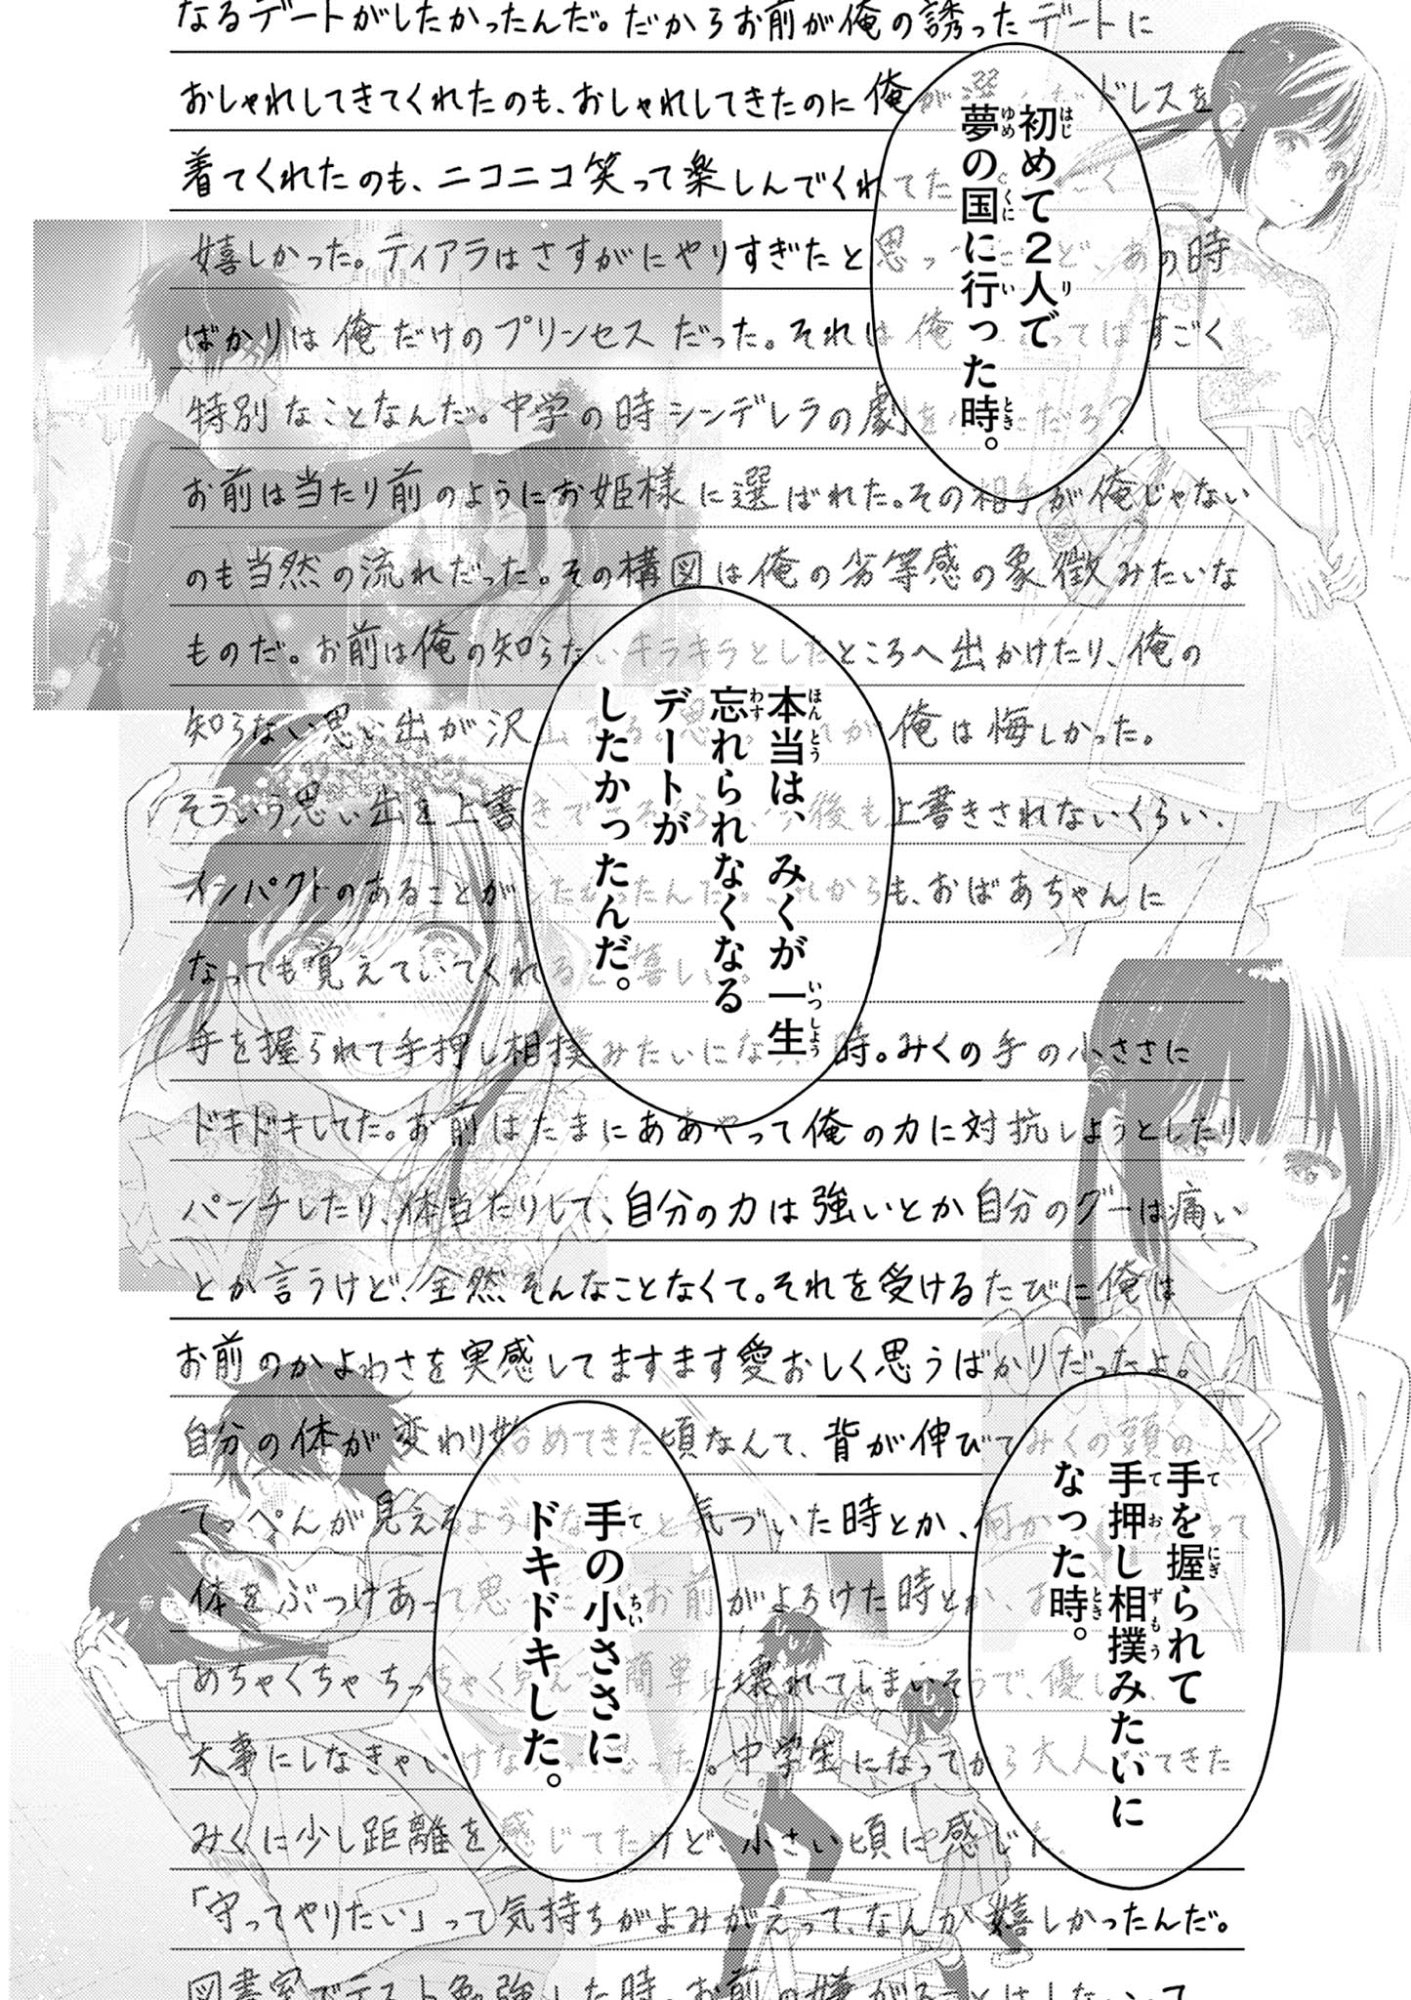 なるデートがしたかったんだ。だからお前が俺の誘ったデートに
おしゃれしてきてくれたのも、おしゃれしてきたのに俺が選んだドレスを
着てくれたのも、ニコニコ笑って楽しんでくれてた
嬉しかった。ティアラはさすがにやりすぎたと思っ あの時
ばかりは俺だけのプリンセスだった。それは俺 ってはすごく
特別なことなんだ。中学の時シンデレラの劇を だろ？
お前は当たり前のようにお姫様に選ばれた。その相手が俺じゃない
のも当然の流れだった。その構図は俺の劣等感の象徴みたいな
ものだ。お前は俺の知らないキラキラとしたところへ出かけたり、俺の
知らない思い出が沢山 俺は悔しかった。
そういう思い出を上書き 今後も上書きされないくらい、
インパクトのあることがしたかったんだ。これからも、おばあちゃんに
なっても覚えていてくれると嬉しい。
手を握られて手押し相撲みたいになった時。みくの手の小ささに
ドキドキしてた。お前はたまにああやって俺の力に対抗しようとしたり、
パンチしたり、体当たりして、自分の力は強いとか自分のグーは痛い
とか言うけど、全然そんなことなくて。それを受けるたびに俺は
お前のかよわさを実感してますます愛おしく思うばかりだったよ。
自分の体が変わり始めてきた頃なんて、背が伸びてみくの頭の
てっぺんが見えるようになったと気づいた時とか、何か って
体をぶつけあって思 お前がよろけた時とか、お
めちゃくちゃちっちゃく見えて簡単に壊れてしまいそうで、優し
大事にしなきゃいけない った。中学生になってから大人 てきた
みくに少し距離を感じてたけど、小さい頃に感じた
「守ってやりたい」って気持ちがよみがえって、なんか嬉しかったんだ。
図書室でテスト勉強した時、お前の嫌がることはしないって
初めて2人で
夢の国に行った時。
本当は、みくが一生
忘れられなくなる
デートが
したかったんだ。
手を握られて
手押し相撲みたいに
なった時。
手の小ささに
ドキドキした。